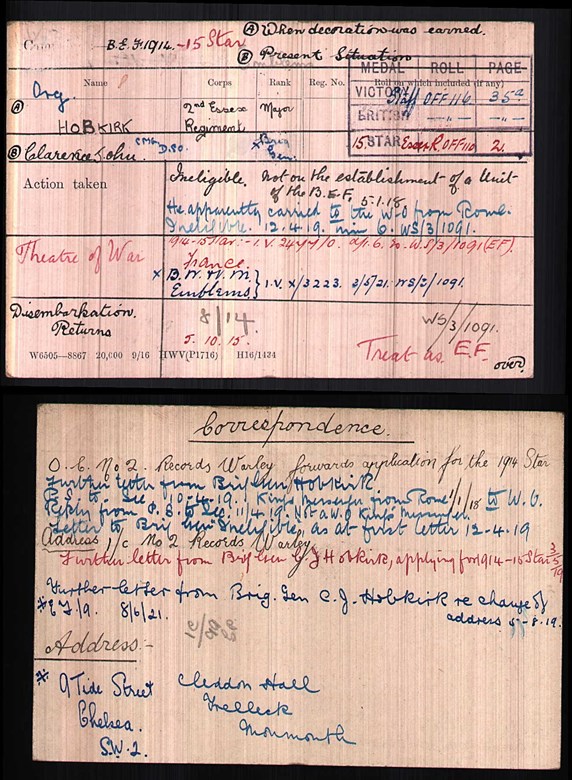 (A) When decoration was earned.
B.E.F. 1914. -15 Star
(B) Present Situation
Name Corps Rank Reg. No. Roll on which included (if any)
MEDAL ROLL PAGE
VICTORY Staff OFF 116 35a
BRITISH -"- -"-
15 STAR Essex R OFF 110 2.
(A)
HOBKIRK
2nd Essex
Regiment
Major
(B) Clarence John. CMG DSO.
x Brig
Gen.
Action taken
Ineligible. Not on the establishment of a Unit
of the B.E.F. 5.1.18
He apparently carried to the W.O from Rome.
Ineligible. 12.4.19. 6. WS/3/1091.
Theatre of War
1914-15 Star:- I.V. WS/3/1091 (E.F.)
France.
x B.W. & V.M.
Emblems } I.V. X/3223. 3/5/21. WS/3/1091.
Disembarkation.
Returns
8/14
5.10.15.
WS/3/1091.
Treat as E.F.
over
W6505—8867 20,000 9/16 HWV(P1716) H16/1434
Correspondence.
O.C. No 2. Records Warley forwards application for the 1914 Star
Further letter from Brig Gen Hobkirk
10-4-19. King's Messenger from Rome to W.O.
Reply from 11/4/19. Not a W.O King's Messenger
Letter to Brig Gen Ineligible, as at first letter 12-4-19
Address i/c No 2 Records Warley
Further letter from Brig Gen C J Hobkirk, applying for 1914-15 Star 3/5/19
Further letter from Brig. Gen C. J. Hobkirk re change of
address 5-8-19.
8/6/21.
Address:-
* 9 Tide Street
Chelsea.
S.W.2.
Cleddon Hall
Trelleck
Monmouth